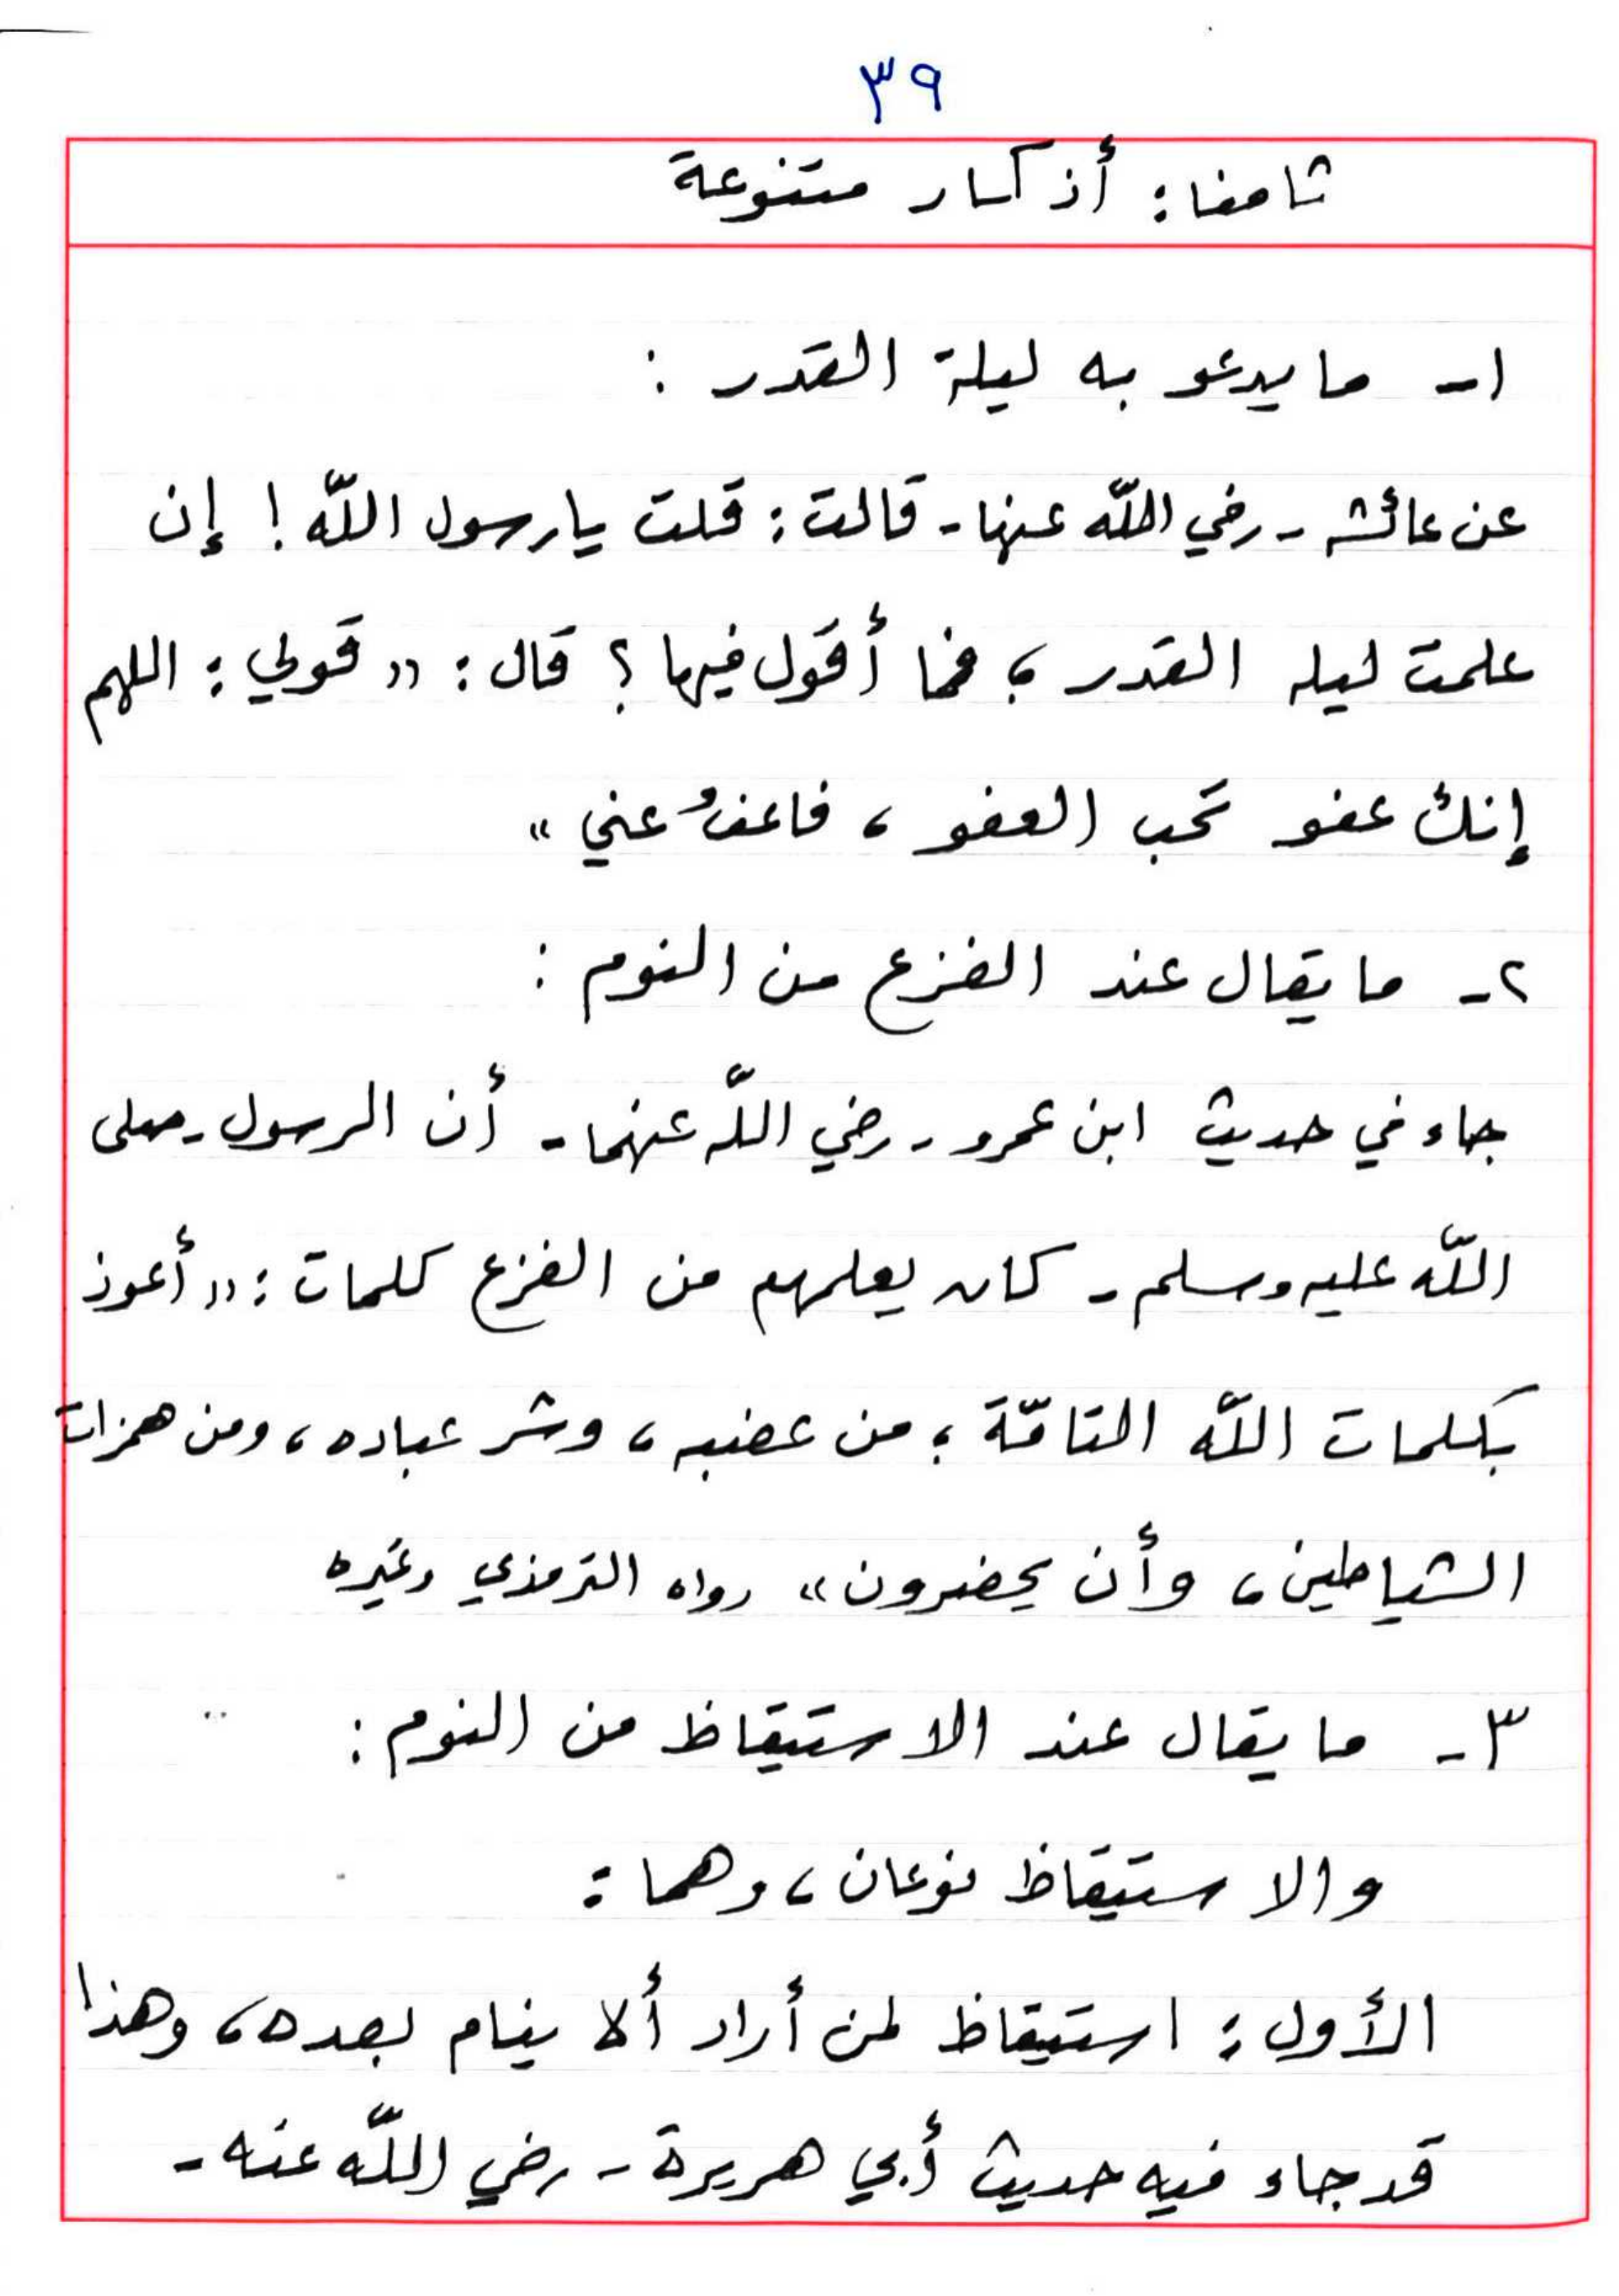 ٣٩
ثامنا: أذكار متنوعة
١- ما يدعو به ليلة القدر :
عن عائشه - رضي اللّه عنها - قالت : قلت يا رسول اللّه ! إن
علمت ليله القدر ؛ فما أقول فيها ؟ قال : «قولي : اللهم
إنك عفو تحب العفو ، فاعفُ عني»
٢- ما يقال عند الفزع من النوم :
جاء في حديث ابن عمرو - رضي اللّه عنهما - أن الرسول - صلى
اللّه عليه وسلم - كان يعلمهم من الفزع كلمات : «أعوذ
بكلمات اللّه التامّة ؛ من غضبه ، وشر عباده ، ومن همزات
الشياطين ، وأن يحضرون» رواه الترمذي وغيره
٣- ما يقال عند الاستيقاظ من النوم :
والاستيقاظ نوعان ، وهما :
الأول : استيقاظ لمن أراد ألا ينام بعده ، وهذا
قد جاء فيه حديث أبي هريرة - رضي اللّه عنه -